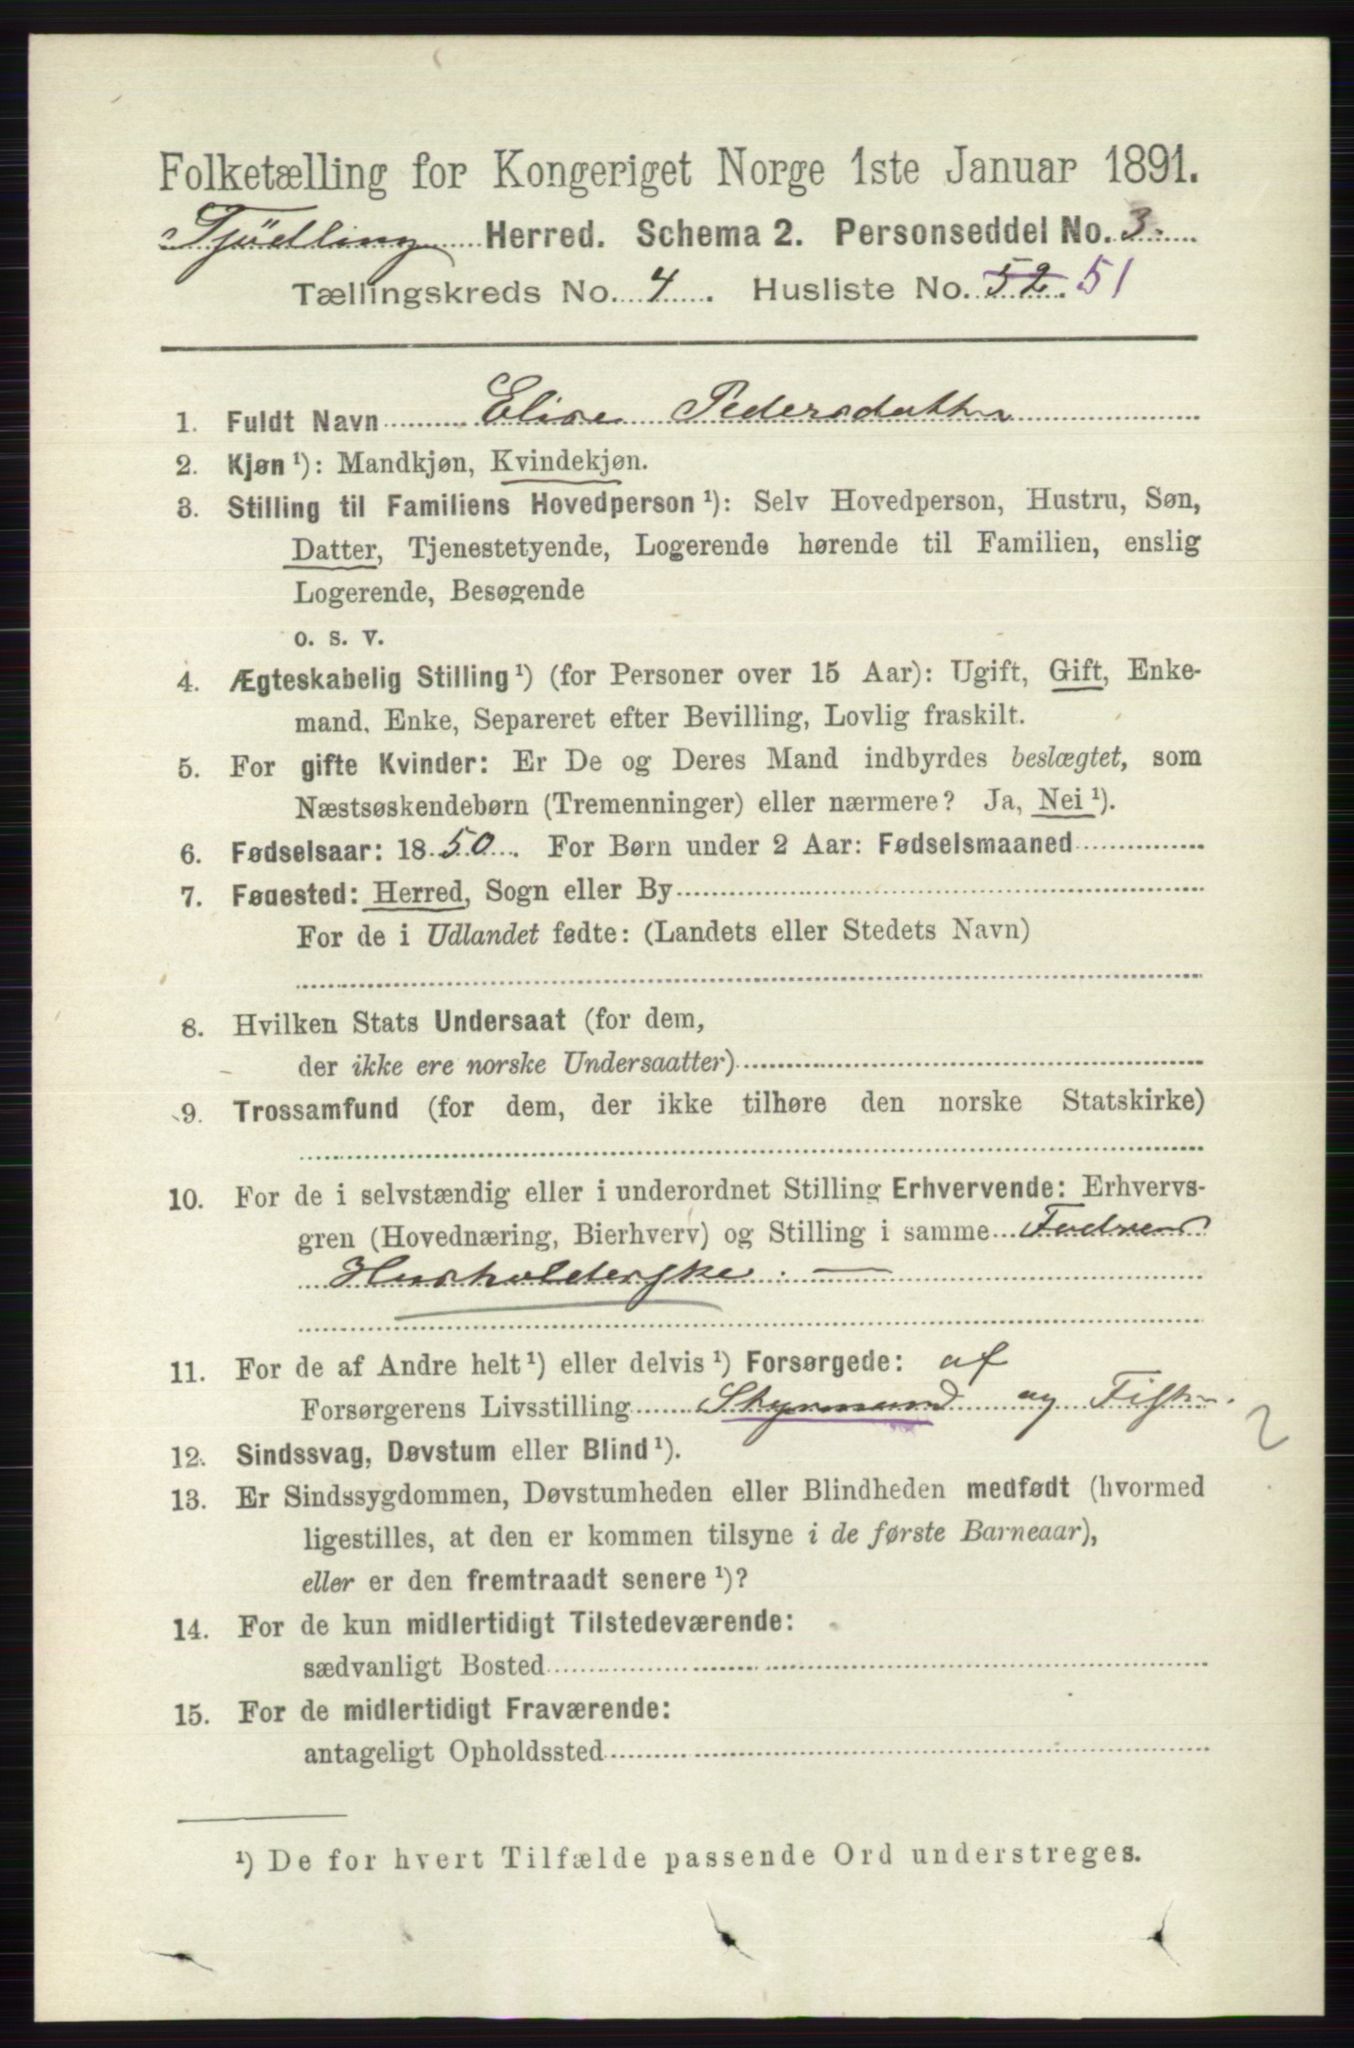 Folketælling for Kongeriget Norge 1ste Januar 1891.
Tjødling Herred. Schema 2. Personseddel No. 3.
Tællingskreds No. 4. Husliste No. 52. 51
1. Fuldt Navn Elise Pedersdatter
2. Kjøn ¹): Mandkjøn, Kvindekjøn.
3. Stilling til Familiens Hovedperson ¹): Selv Hovedperson, Hustru, Søn,
Datter, Tjenestetyende, Logerende hørende til Familien, enslig
Logerende, Besøgende
o. s. v.
4. Ægteskabelig Stilling ¹) (for Personer over 15 Aar): Ugift, Gift, Enke-
mand, Enke, Separeret efter Bevilling, Lovlig fraskilt.
5. For gifte Kvinder: Er De og Deres Mand indbyrdes beslægtet, som
Næstsøskendebørn (Tremenninger) eller nærmere? Ja, Nei ¹).
6. Fødselsaar: 1850. For Børn under 2 Aar: Fødselsmaaned
7. Fødested: Herred, Sogn eller By
For de i Udlandet fødte: (Landets eller Stedets Navn)
8. Hvilken Stats Undersaat (for dem,
der ikke ere norske Undersaatter)
9. Trossamfund (for dem, der ikke tilhøre den norske Statskirke)
10. For de i selvstændig eller i underordnet Stilling Erhvervende: Erhvervs-
gren (Hovednæring, Bierhverv) og Stilling i samme Fadrens
Husholderske. —
11. For de af Andre helt ¹) eller delvis ¹) Forsørgede: af
Forsørgerens Livsstilling Styrmand og Fisker.
2
12. Sindssvag, Døvstum eller Blind ¹).
13. Er Sindssygdommen, Døvstumheden eller Blindheden medfødt (hvormed
ligestilles, at den er kommen tilsyne i de første Barneaar),
eller er den fremtraadt senere ¹)?
14. For de kun midlertidigt Tilstedeværende:
sædvanligt Bosted
15. For de midlertidigt Fraværende:
antageligt Opholdssted
¹) De for hvert Tilfælde passende Ord understreges.